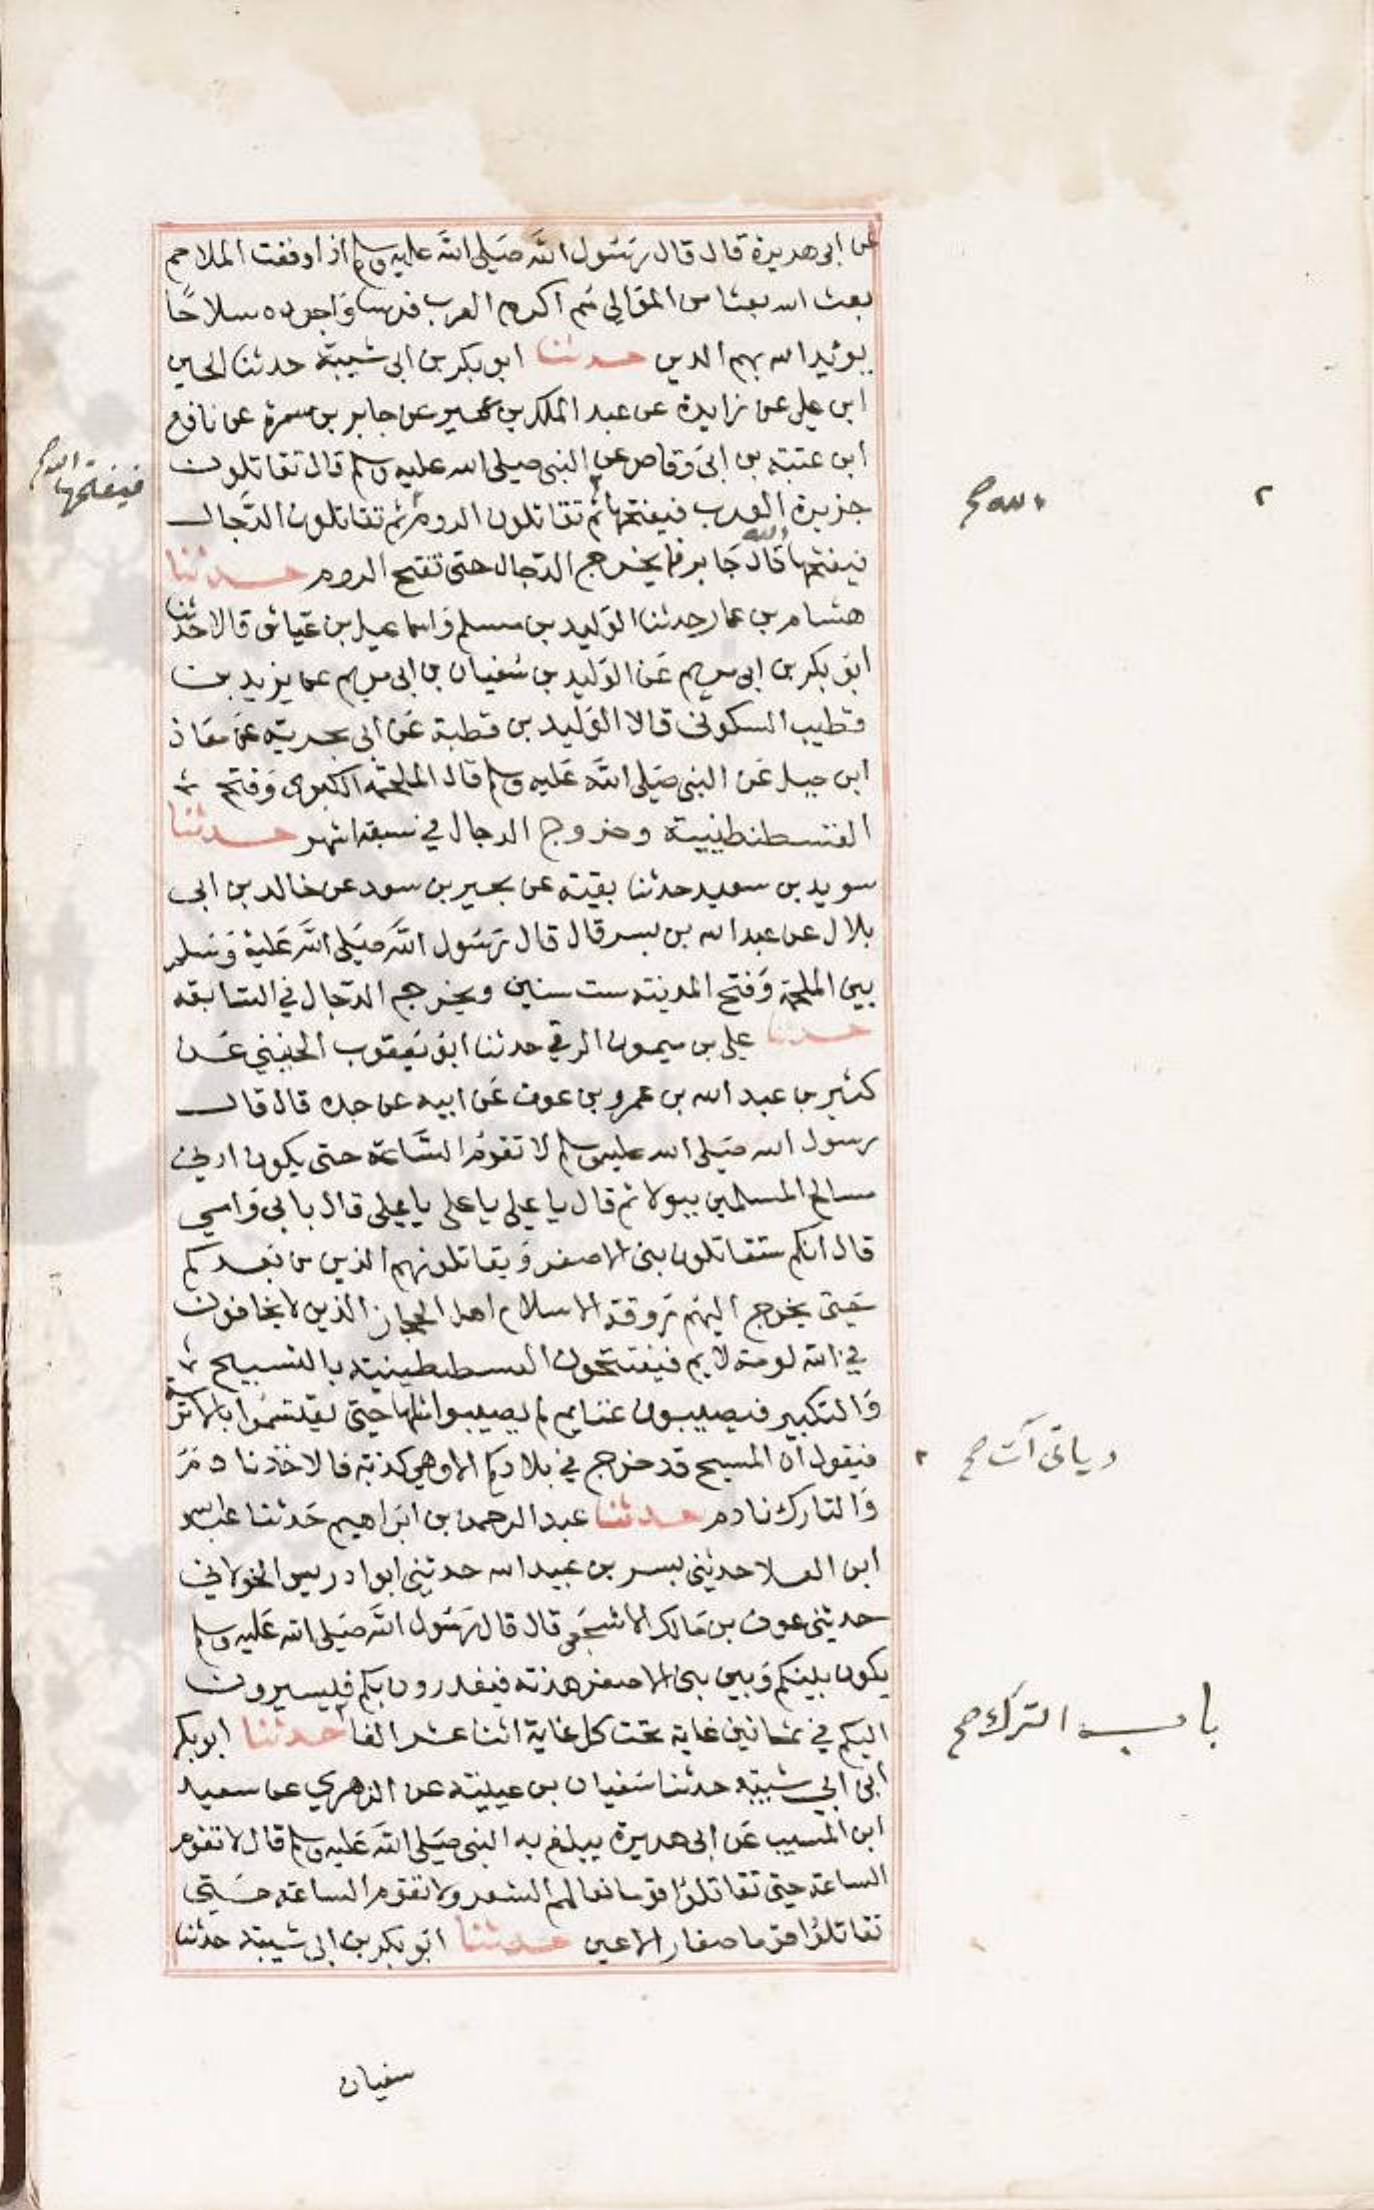 عن ابى هريرة قال قال رسول الله صلى الله عليه وسلم اذا وقعت الملاحم
بعث الله بعثا من الموالي هم اكرم العرب فرسا واجوده سلاحا
يؤيد الله بهم الدين حدثنا ابو بكر بن ابى شيبة حدثنا الحسين
ابن علي عن زايدة عن عبد الملك بن عمير عن جابر بن سمرة عن نافع
ابن عتبة بن ابى وقاص عن النبى صلى الله عليه وسلم قال تقاتلون
جزيرة العرب فيفتحها ثم تقاتلون الروم ثم تقاتلون الدجال
فيفتحها الله قال جابر فما يخرج الدجال حتى تفتح الروم حدثنا
هشام بن عمار حدثنا الوليد بن مسلم واسماعيل بن عياش قالا حدثنا
ابو بكر بن ابى مريم عن الوليد بن سفيان بن ابى مريم عن يزيد بن
قطيب السكونى قالا الوليد بن قطبة عن ابى بحرية عن معاذ
ابن جبل عن النبى صلى الله عليه وسلم قال الملحمة الكبرى وفتح
القسطنطينية وخروج الدجال في سبعة اشهر حدثنا
سويد بن سعيد حدثنا بقية عن بحير بن سعد عن خالد بن ابى
بلال عن عبد الله بن بسر قال قال رسول الله صلى الله عليه وسلم
بين الملحمة وفتح المدينة ست سنين ويخرج الدجال في السابعة
حدثنا علي بن ميمون الرقي حدثنا ابو يعقوب الحنيني عن
كثير بن عبد الله بن عمرو بن عوف عن ابيه عن جده قال قال
رسول الله صلى الله عليه وسلم لا تقوم الساعة حتى يكون ادنى
مسالح المسلمين ببولا ثم قال يا علي يا علي يا علي قال بابى وامي
قال انكم ستقاتلون بنى الاصفر ويقاتلونهم الذين من بعدكم
حتى يخرج اليهم روقة الاسلام اهل الحجاز الذين لا يخافون
في الله لومة لايم فيفتتحون القسطنطينية بالتسبيح
والتكبير فيصيبون غنايم لم يصيبوا مثلها حتى يقتسموا بالاترسة
فيقول ان المسيح قد خرج في بلادكم الا وهي كذبة فالاخذ نادم
والتارك نادم حدثنا عبد الرحمن بن ابراهيم حدثنا
ابن العلا حدثنى بسر بن عبيد الله حدثنى ابو ادريس الخولاني
حدثنى عوف بن مالك الاشجعي قال قال رسول الله صلى الله عليه وسلم
يكون بينكم وبين بنى الاصفر هدنة فيغدرون بكم فيسيرون
اليكم في ثمانين غاية تحت كل غاية اثنا عشر الفا حدثنا ابو بكر
ابن ابي شيبة حدثنا سفيان بن عيينة عن الزهري عن سعيد
ابن المسيب عن ابى هريرة يبلغ به النبى صلى الله عليه وسلم قال لا تقوم
الساعة حتى تقاتلوا قوما نعالهم الشعر ولا تقوم الساعة حتى
تقاتلوا قوما صغار الاعين حدثنا ابو بكر بن ابى شيبة حدثنا
سفيان
فيفتحها الله صح
الله صح
وياتى آت صح
باب الترك صح